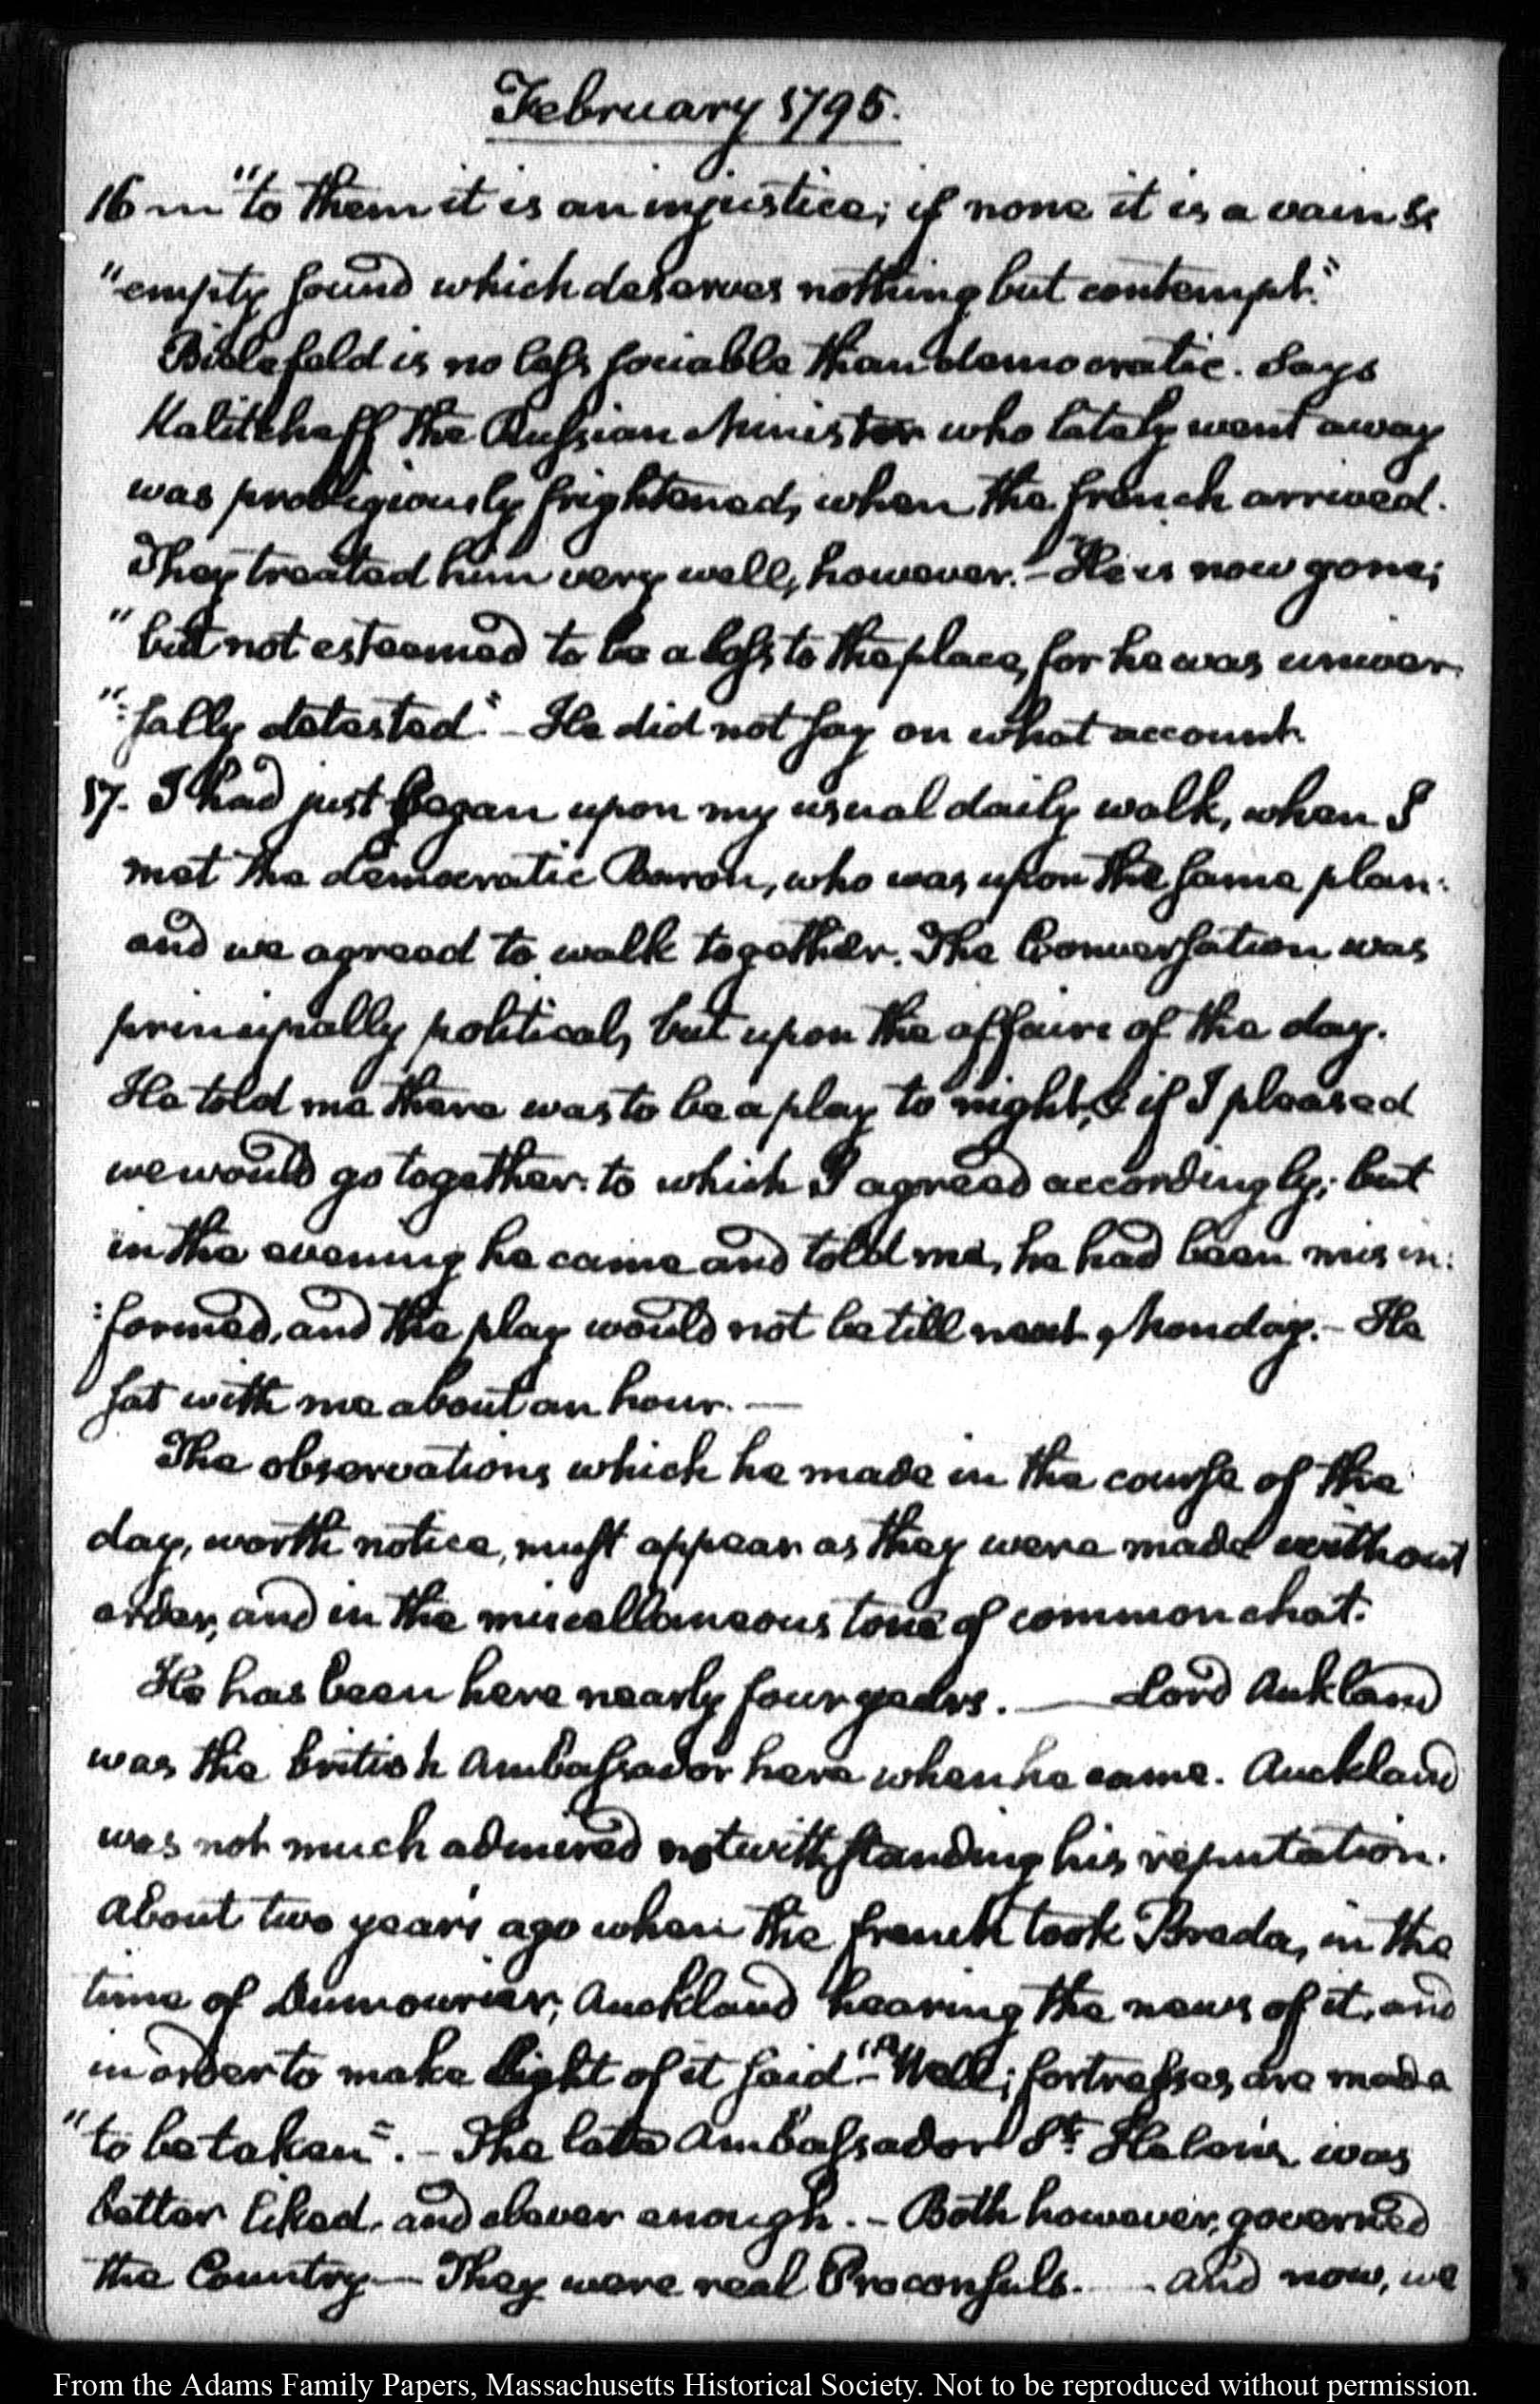 February 1795.
16 m "to them it is an injustice; if none it is a vain &
"empty sound which deserves nothing but contempt."
Bielefeld is no less sociable than democratic. Says
Kalitcheff the Russian Minister who lately went away
was prodigiously frightened, when the french arrived.
They treated him very well, however.— "He is now gone;
"but not esteemed to be a loss to the place, for he was univer
":sally detested."— He did not say on what account.
17. I had just began upon my usual daily walk, when I
met the democratic Baron, who was upon the same plan:
and we agreed to walk together. The Conversation was
principally political, but upon the affairs of the day.
He told me there was to be a play to night, & if I pleased
we would go together: to which I agreed accordingly; but
in the evening he came and told me, he had been mis in:
:formed, and the play would not be till next Monday.— He
sat with me about an hour.—
The observations which he made in the course of the
day, worth notice, must appear as they were made without
order, and in the miscellaneous tone of common chat.
He has been here nearly four years. — Lord Aukland
was the british Ambassador here when he came. Auckland
was not much admired notwithstanding his reputation.
About two years ago when the french took Breda, in the
time of Dumourier, Auckland hearing the news of it, and
in order to make light of it said— "Well; fortresses are made
"to be taken".— The late Ambassador St. Helens, was
better liked, and clever enough.— Both however, governed
the Country— They were real Proconsuls. — And now, we
From the Adams Family Papers, Massachusetts Historical Society. Not to be reproduced without permission.